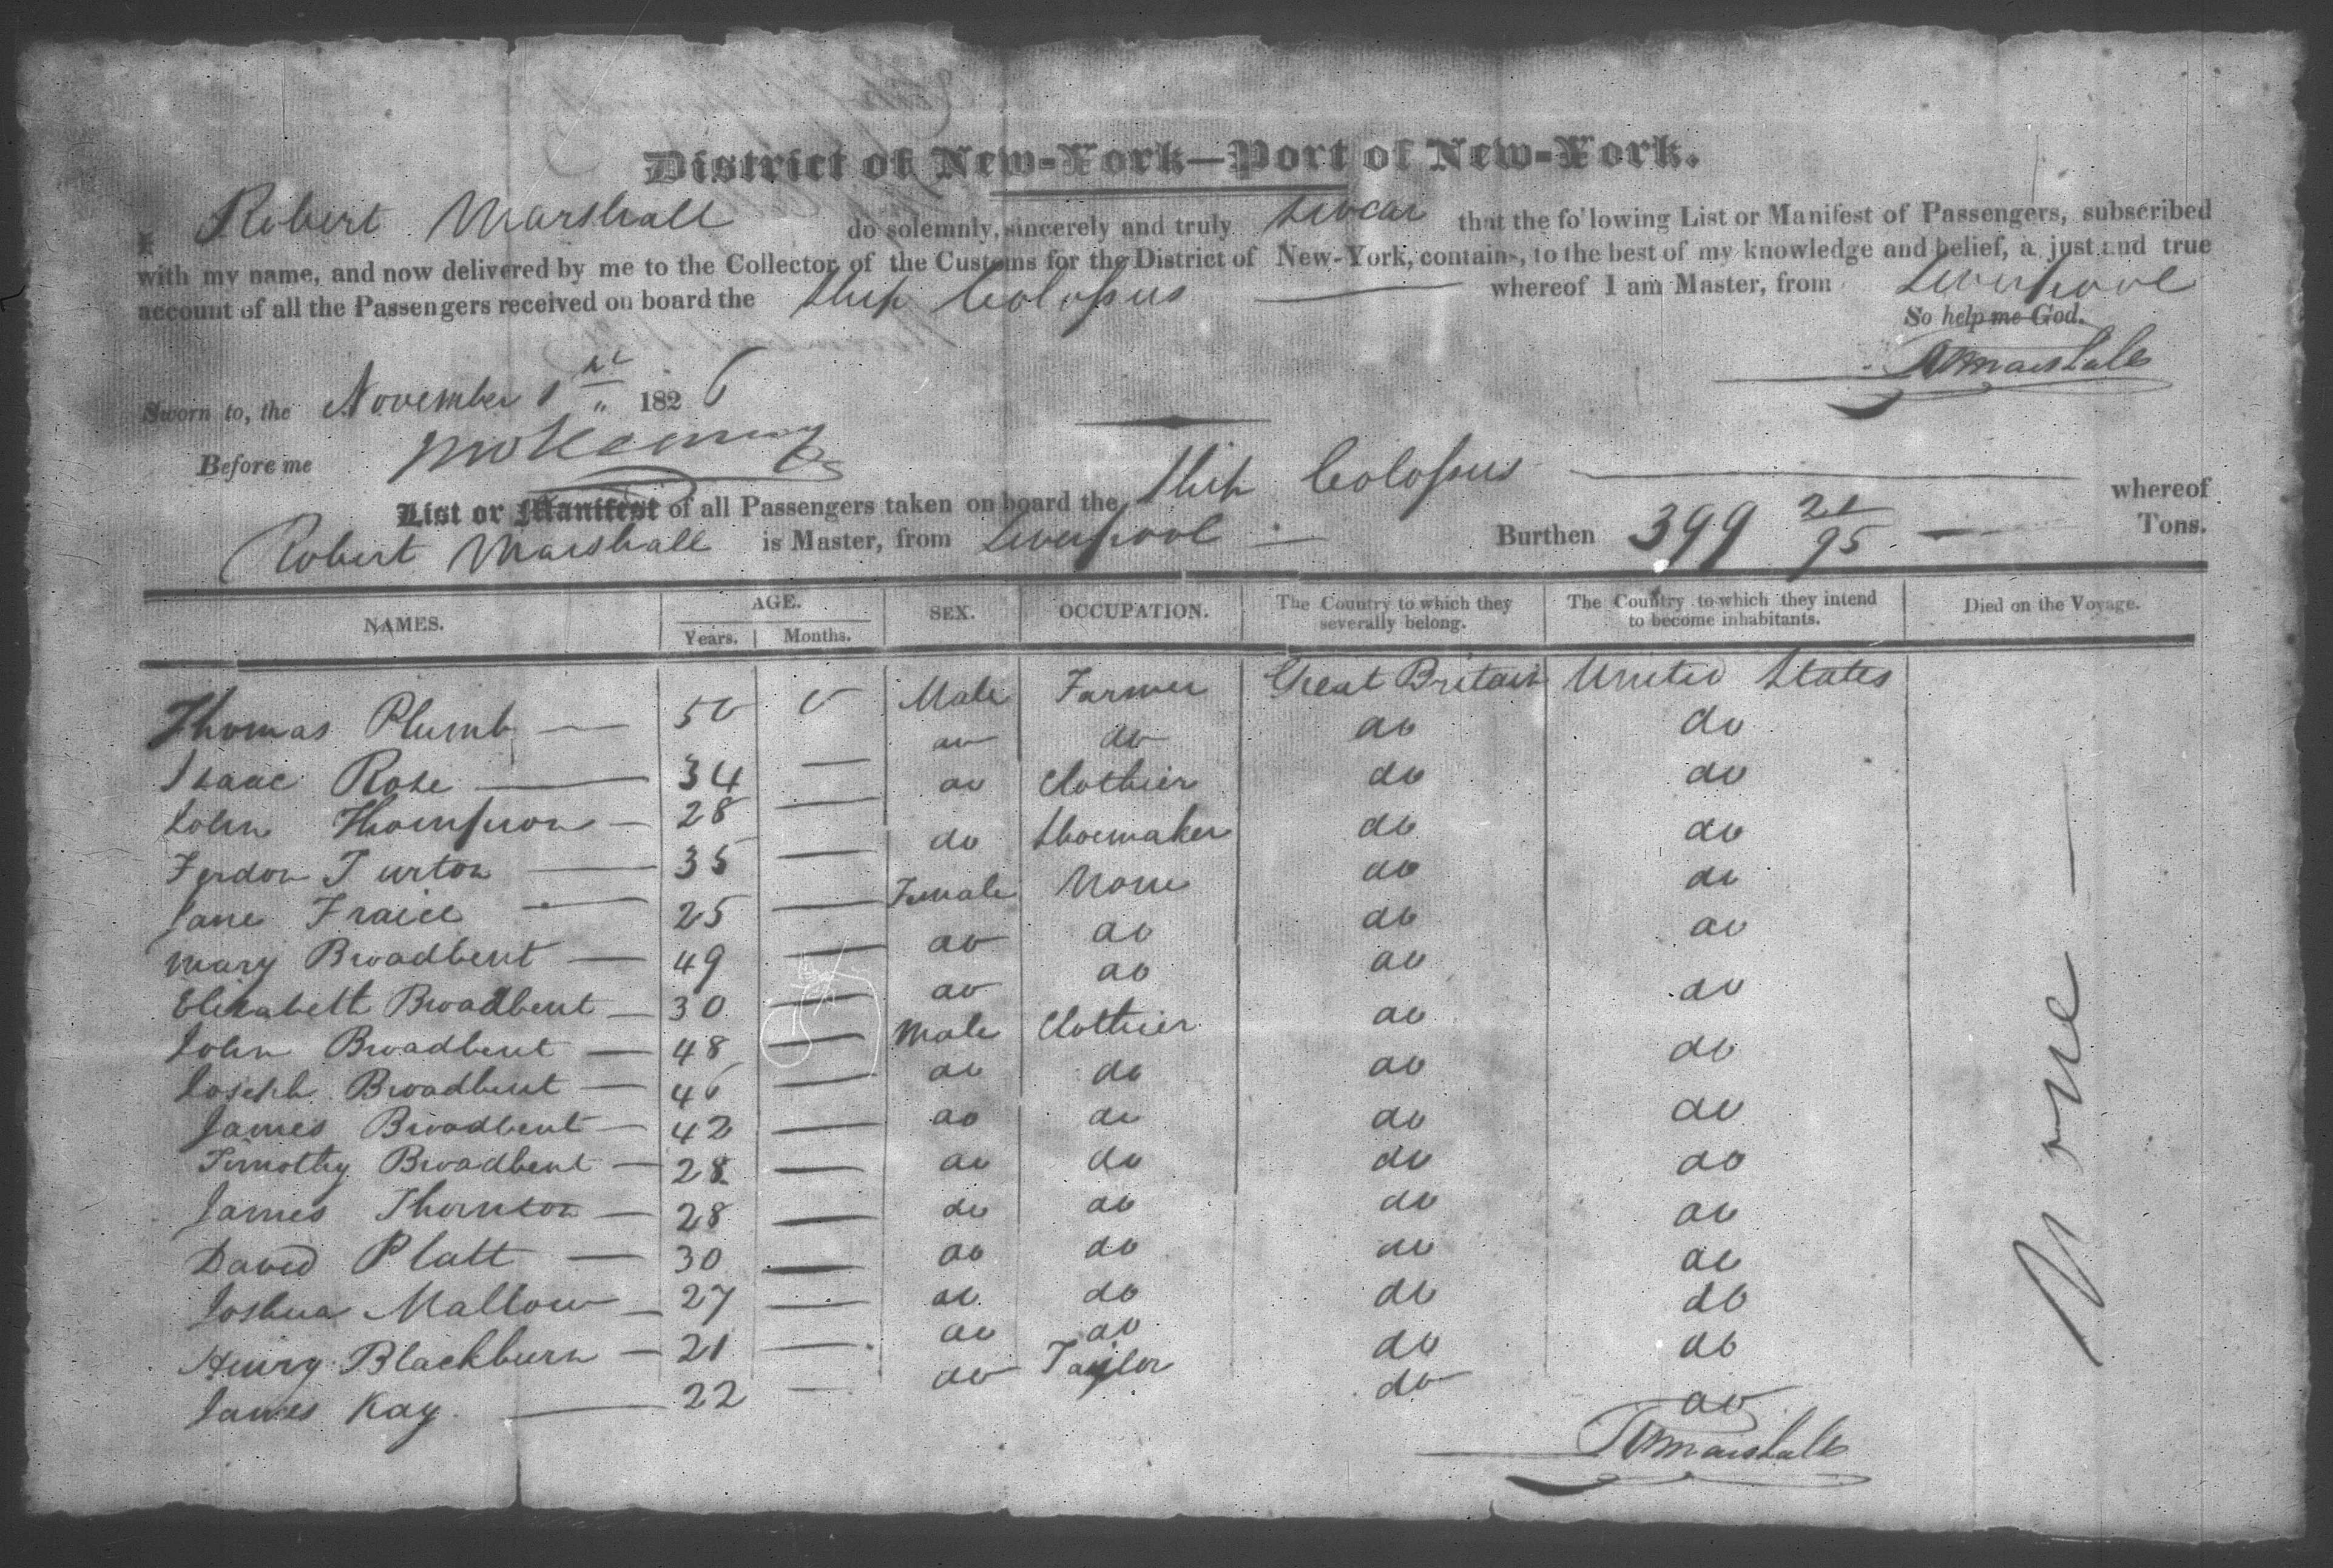 District of New-York—Port of New-York.
I Robert Marshall do solemnly, sincerely and truly swear that the following List or Manifest of Passengers, subscribed
with my name, and now delivered by me to the Collector of the Customs for the District of New-York, contains, to the best of my knowledge and belief, a just and true
account of all the Passengers received on board the Ship Colossus — whereof I am Master, from Liverpool
So help me God.
R Marshall
Sworn to, the November 1st 1826
Before me
List or Manifest of all Passengers taken on board the Ship Colossus — whereof
Robert Marshall is Master, from Liverpool — Burthen 399 21/95 — Tons.
NAMES. AGE. Years. Months. SEX. OCCUPATION. The Country to which they severally belong. The Country to which they intend to become inhabitants. Died on the Voyage.
Thomas Plumb — 50 0 Male Farmer Great Britain United States
Isaac Rose — 34 — do do do do
John Thompson — 28 — do Clothier do do
Turton — 35 — do Shoemaker do do
Jane — 25 — Female None do do
Mary Broadbent — 49 — do do do do
Elizabeth Broadbent — 30 — do do do do
John Broadbent — 48 — Male Clothier do do
Joseph Broadbent — 46 — do do do do
James Broadbent — 42 — do do do do
Timothy Broadbent — 28 — do do do do
James Thornton — 28 — do do do do
David Platt — 30 — do do do do
Joshua Mallow — 27 — do do do do
Henry Blackburn — 21 — do do do do
James Kay — 22 — do Taylor do do
None —
R Marshall